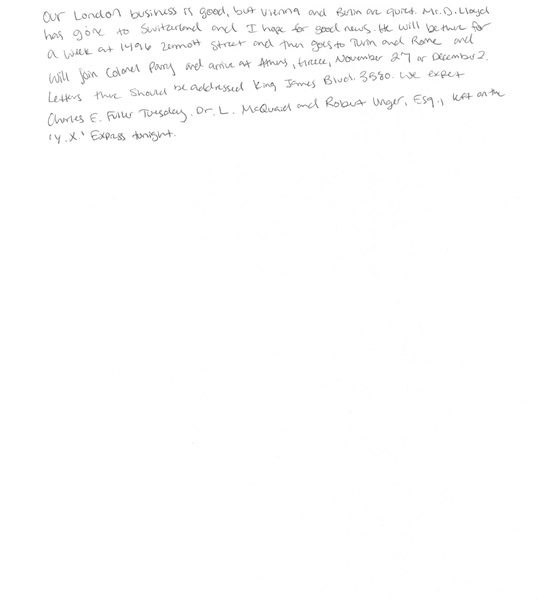 Our London business is good, but Vienna and Berlin are quiet. Mr. D. Lloyd
has gone to Switzerland and I hope for good news. He will be there for
a week at 1496 Zermott Street and then goes to Turin and Rome and
will join Colonel Parry and arrive at Athens, Greece, November 27 or December 2.
Letters there should be addressed King James Blvd. 3580. We expect
Charles E. Fuller Tuesday. Dr. L. McQuaid and Robert Unger, Esq., left on the
'Y.X.' Express tonight.